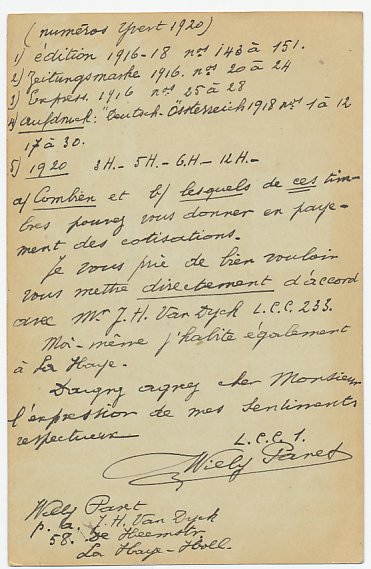 (numéros Yvert 1920)
1) édition 1916-18 nos 143 à 151.
2) Zeitungsmarke 1916. nos 20 à 24
3) Express. 1916 nos 25 à 28
4) Aufdruck: Deutsch-Österreich 1918 nos 1 à 12
17 à 30.
5) 1920 3H.- 5H.- 6H.- 12H.-
a) Combien et b) lesquels de ces tim-
bres pouvez vous donner en paye-
ment des cotisations.
Je vous prie de bien vouloir
vous mettre directement d'accord
avec Mr. J. H. Van Dyck L.C.C. 233.
Moi-même j'habite également
à La Haye.
Daigny agréez cher Monsieur
l'expression de mes sentiments
respectueux
L.C.C. 1.
Willy Paret
Willy Paret
p. a. J. H. Van Dyck
58. De Heemstr.
La Haye-Holl.